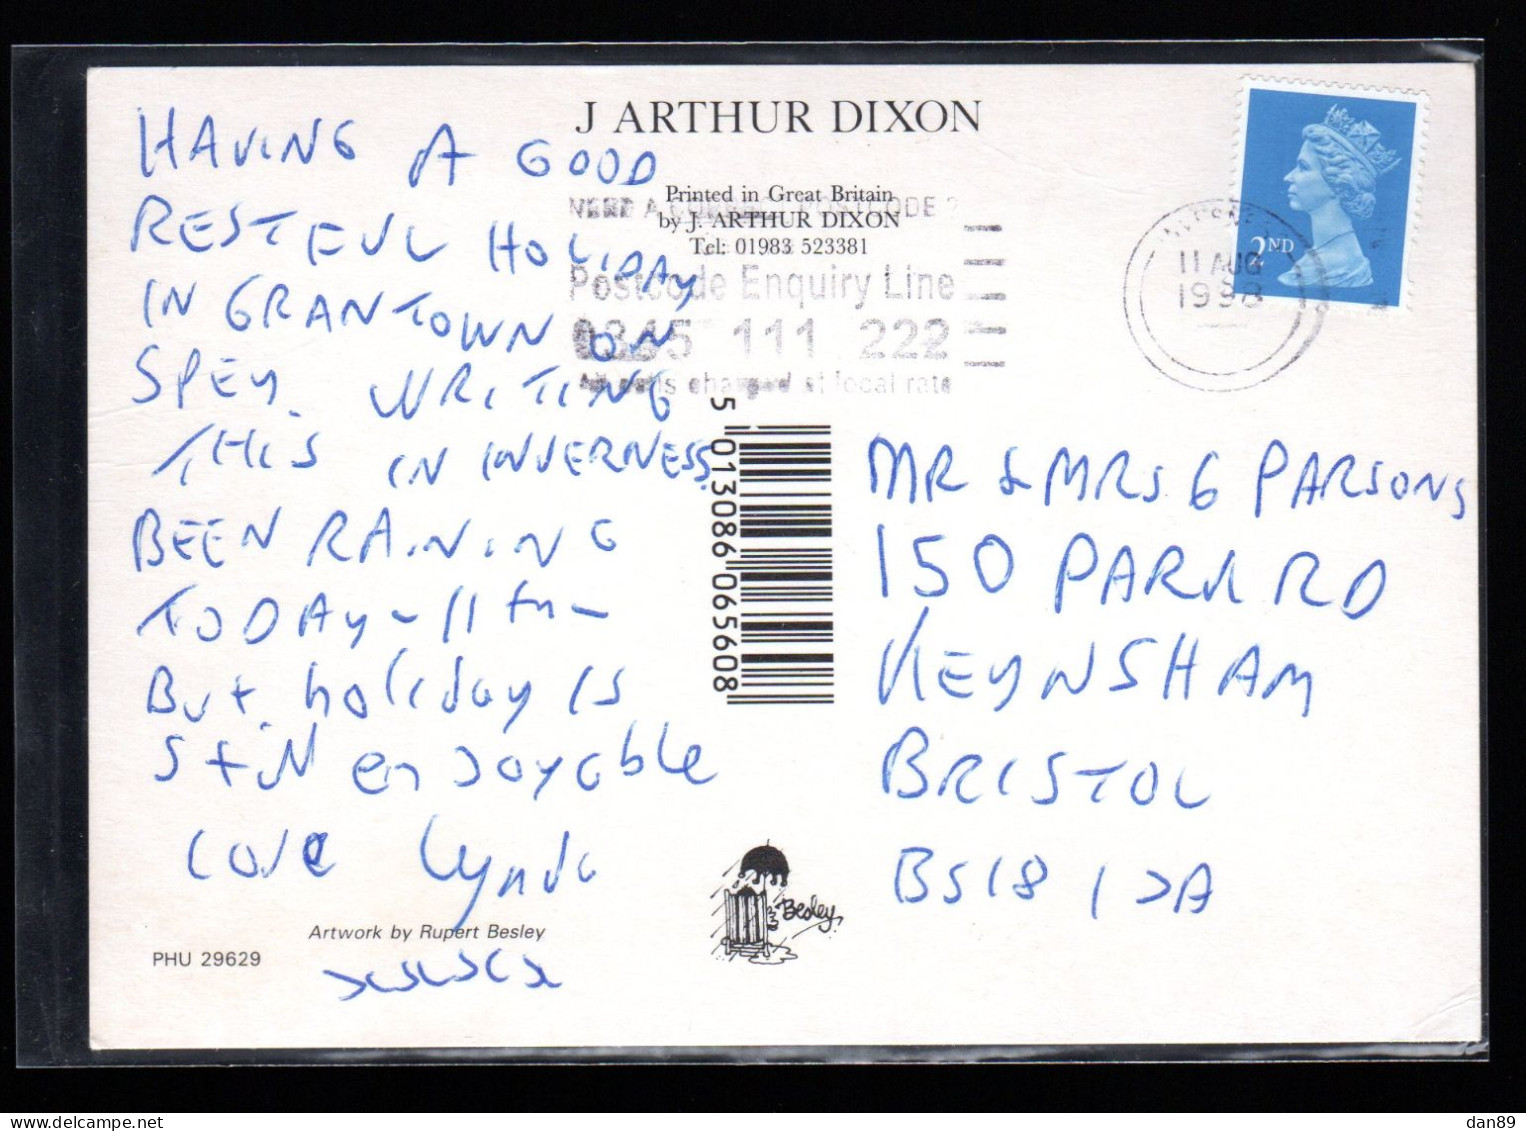 J ARTHUR DIXON
Printed in Great Britain
by J. ARTHUR DIXON
Tel: 01983 523381
NEED A CORRECT POSTCODE ?
Postcode Enquiry Line
0345 111 222
All calls charged at local rate
2ND
11 AUG
1998
HAVING A GOOD
RESTFUL HOLIDAY
IN GRANTOWN ON
SPEY. WRITING
THIS IN INVERNESS.
BEEN RAINING
TODAY - 11th -
But holiday is
still enjoyable
Love Lynda
Artwork by Rupert Besley
PHU 29629
xxxxx
5 013086 065608
Besley
MR & MRS G PARSONS
150 PARK RD
KEYNSHAM
BRISTOL
BS18 1DA
dan89